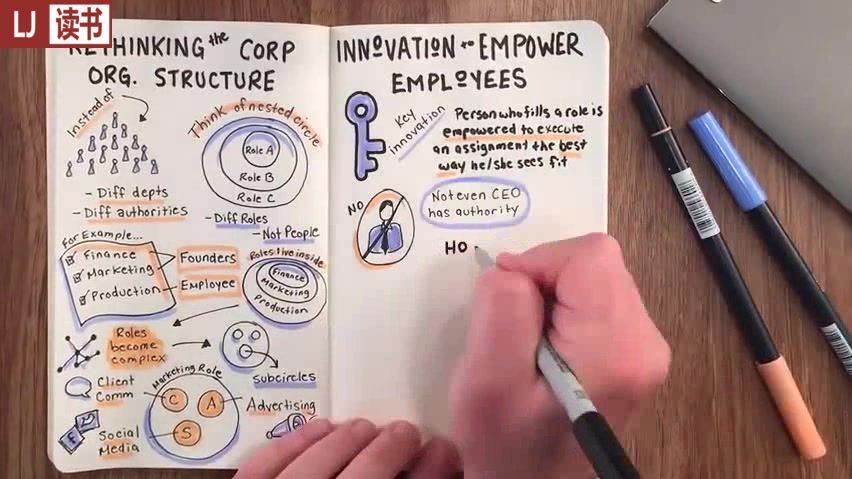 LJ 读书
RETHINKING the CORP
ORG. STRUCTURE
Instead of
Think of nested circle
Role A
Role B
Role C
- Diff depts
- Diff authorities
- Diff Roles
- Not People
For Example...
Finance
Marketing
Production
Founders
Employee
Roles live inside
Finance
Marketing
Production
Roles
become
complex
Subcircles
Client
Comm
Marketing Role
C
A
S
Advertising
Social
Media
f
INNOVATION to EMPOWER
EMPLOYEES
Key
Innovation
Person who fills a role is
empowered to execute
an assignment the best
way he/she sees fit
NO
Not even CEO
has authority
HO